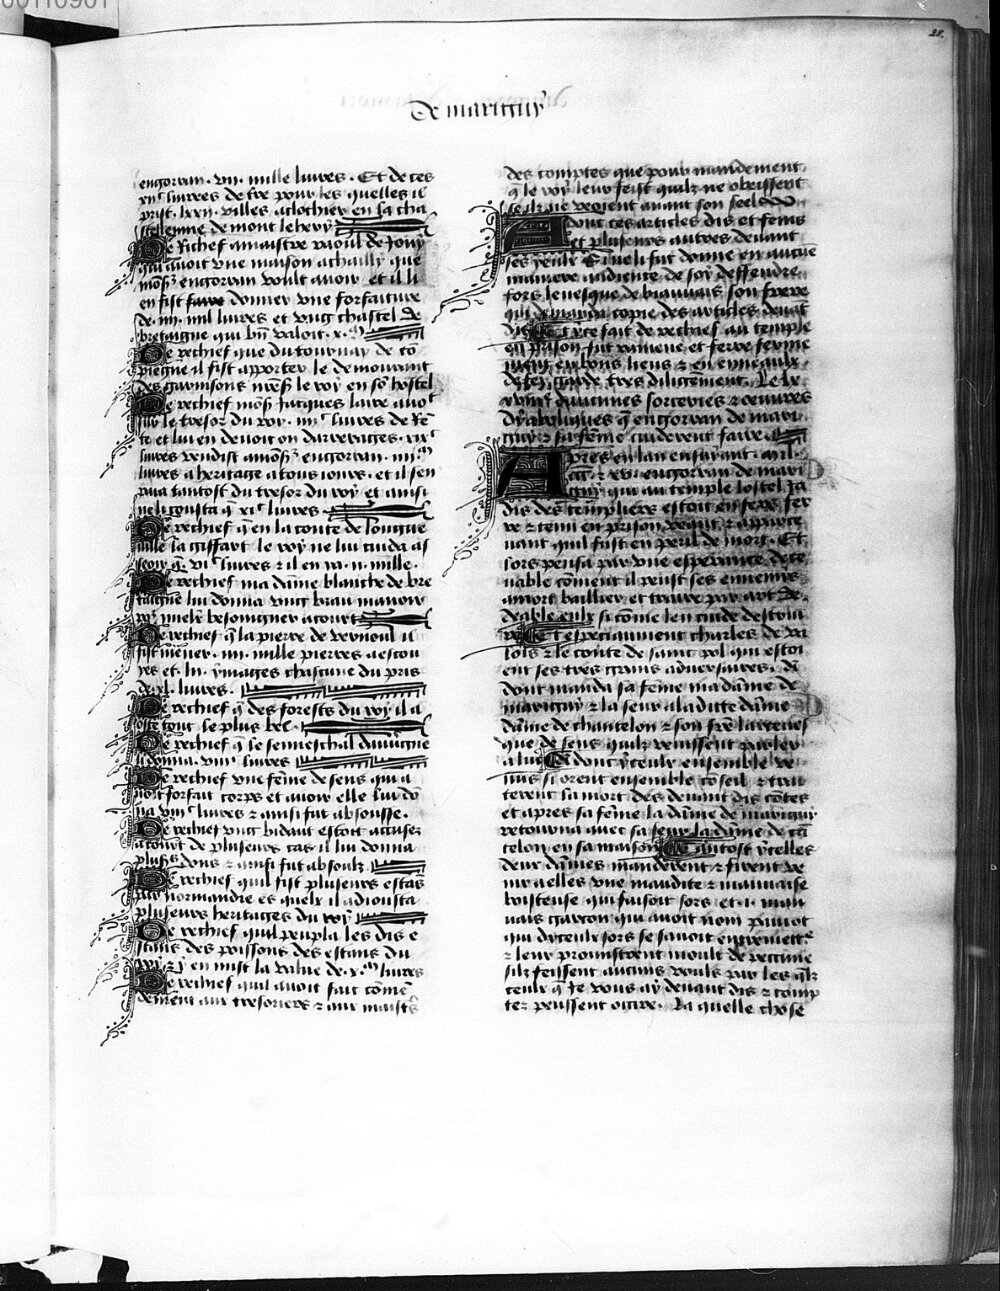 28.
De marigny
engorran . viii. mille livres . Et de ces
xiic livrees de tre pour les quelles il
prist . lxxii . villes a clochier en sa cha
stellenne de mont lehery
De Richef a maistre raoul de Jouy
qui avoit une maison a chailly que
mons engorran voult avoir et il li
en fist faire donner une forfaiture
de . iiii. mil livres et ung chastel de
bretaigne qui bn valoit . x. m
De rechief que du tournay de co
piegne il fist apporter le demourant
des garnisons nres le roy en so hostel
De rechief mons Jacques laire avoit
sur le tresor du roy . iiiic livres de Re
te et lui en devoit on darrerages . vixc
livres vendist a mons engorran . iiiic
livres a heritage a tous jours . et il sen
paia tantost du tresor du roy et ainsi
ne li cousta q xic livres
De rechief q en la conte de longue
ville la giffart le roy ne lui cuida as
seoir q vic livres z il en va . ii. mille .
De rechief ma dame blanche de bre
taigne lui donna ung biau manoir
por mielx besoigner a court
De rechief q la pierre de vernoul il
fist mener . iiii. mille pierres a escou
yes et . lii . ymages chascune du pris
de . xl. livres .
De rechief q des forests du roy il a
oste tout le plus bel .
De rechief q le seneschal dauvgne
li donna . viiic livres
De rechief une feme de sens qui a
voit forfait corps et avoir elle lui do
na viiic livres z ainsi fut absousse .
De rechief ung bidaut estoit accusez
a court de pluseurs cas il lui donna
plusrs dons z ainsi fut absoulz
De rechief quil fist pluseurs estas
par normandie es quelx il adiousta
pluseurs heritages du roy
De rechief quil peupla les dis e
stans des poissons des estans du
roy z y en mist la value de . x. m livres
De rechief quil avoit fait come
dement aux tresoriers z aux maistrs
des comptes que pour mandement
q le roy leur feist quilz ne obeissent
se ilz ne veoient avant son seel
Adont ces articles dis et fenis
et pluseurs autres devant
ses yeulx Et ne li fut donne en aucue
maniere audience de soy deffendre
fors levesque de biauvais son frere
qui demanda copie des articles devat
dis Et ce fait de rechief au temple
en prison fut ramene et ferre ferme
ment en bons liens z en enneaulx
de fer garde tres diligement . Le lx
xviiic daucunes sorceries z oeuvres
dyaboliques q engorran de mari
gny z sa feme cuiderent faire
Apres en lan ensuyvant . mil .
ccc z xvi engorran de mari
gny qui au temple lostel ja
dis des templiers estoit en seps fer
re z tenu en prison veant z apparce
vant quil fust en peril de mort . Et
lors pensa par une esperance dece
vable coment il peust ses ennemis
a mort baillier et trouve par art de
deable eulx si come len cuide destrui
re Et especiaument charles de va
lois z le conte de saint pol qui estoi
ent ses tres grans adversaires . A
dont manda sa feme ma dame de
marigny z la seur a la ditte dame
dame de chantelou z son fre larceves
que de sens quilz venissent parler
a lui Et adont yceulx ensemble ve
nus si orent ensemble coseil z trai
terent la mort des devant dis cotes
et apres sa feme la dame de marigny
retourna avec sa seur la dame de ca
telou en sa maison Et tantost ycelles
deux dames manderent z firent ve
nir a elles une maudite z mauvaise
boisteuse qui faisoit sors et . i. mau
vais garcon qui avoit nom paviot
qui dyceulx sors se savoit entremettre
z leur promistrent moult de peccune
silz feissent aucuns voults par les qlz
ceulx q Je vous ay devant dis z comp
tez peussent occire . La quelle chose